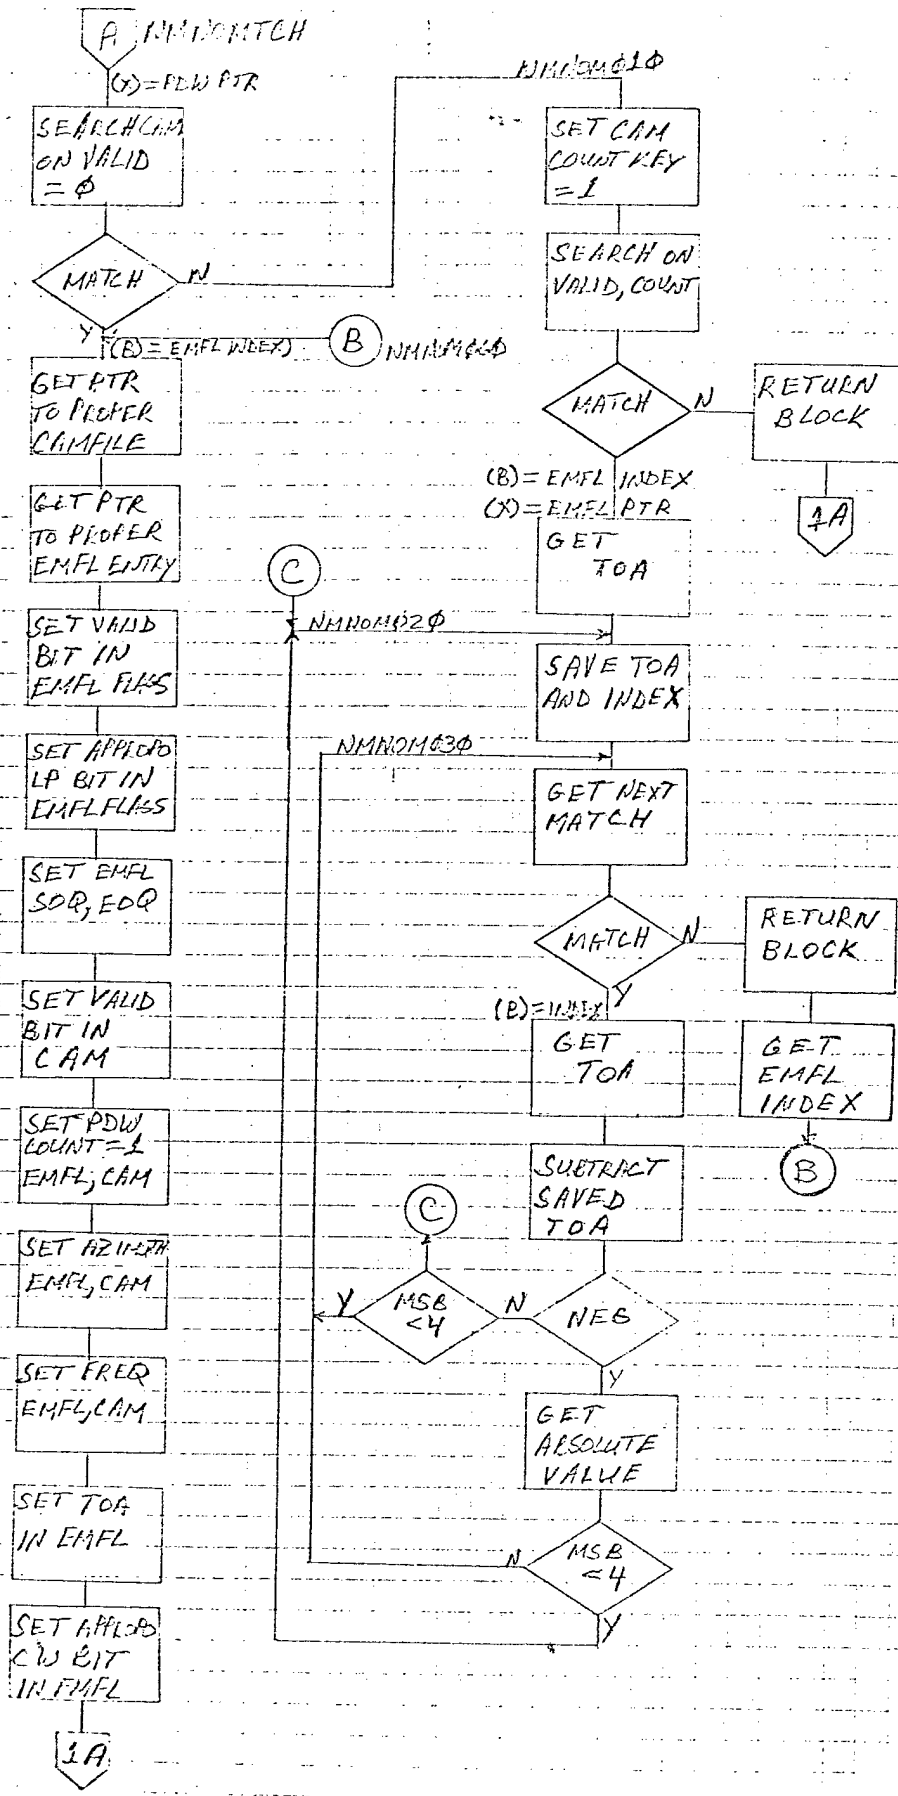 A NMNOMTCH
(X)=PDW PTR
SEARCH CAM
ON VALID
= Ø
MATCH
N
Y
(B)=EMFL INDEX)
B
GET PTR
TO PROPER
CAMFILE
GET PTR
TO PROPER
EMFL ENTRY
SET VALID
BIT IN
EMFL FLAGS
SET APPROPO
LP BIT IN
EMFL FLAGS
SET EMFL
SOQ, EOQ
SET VALID
BIT IN
CAM
SET PDW
COUNT=1
EMFL, CAM
SET AZIMTH
EMFL, CAM
SET FREQ
EMFL, CAM
SET TOA
IN EMFL
SET APPROPO
CW BIT
IN EMFL
1A
NMNOMØ1Ø
SET CAM
COUNT KEY
= 1
SEARCH ON
VALID, COUNT
MATCH
N
RETURN
BLOCK
1A
(B)= EMFL INDEX
(X)=EMFL PTR
GET
TOA
C
NMNOMØ2Ø
SAVE TOA
AND INDEX
NMNOMØ3Ø
GET NEXT
MATCH
MATCH
N
RETURN
BLOCK
GET
EMFL
INDEX
B
Y
(B)=INDEX
GET
TOA
SUBTRACT
SAVED
TOA
C
Y
MSB
<4
N
NEG
Y
GET
ABSOLUTE
VALUE
N
MSB
<4
Y